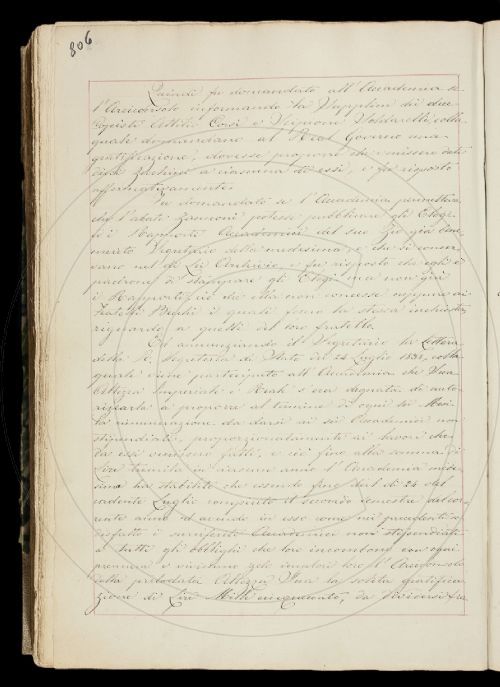 806
Quindi fu domandato all'Accademia se
l'Arciconsolo informando la Supplica di due
Copisti Attilio Corsi e Vignoni colla
quale domandano al Real Governo una
gratificazione, dovesse proporre che venissero dati
zecchini a ciascuno di essi, e fu risposto
affermativamente.
Fu domandato se l'Accademia permetteva
che l'abate Zannoni potesse pubblicare gli Elogi
e i Rapporti Accademici del suo Zio già bene
merito Segretario della medesima, e che si conser
vano nel di Lei Archivio, e fu risposto che egli è
padrone di stampare gli Elogi ma non già
i Rapporti, ciò che ella non concesse neppure ai
Fratelli i quali fecero la stessa inchiesta
riguardo a quelli del loro fratello.
annunziando il Segretario la Lettera
della R. Segreteria di Stato del 24 Luglio colla
quale viene partecipato all'Accademia che Sua
Altezza Imperiale e Reale s'era degnata di auto
rizzarla a proporre al termine di ogni
la remunerazione da darsi ai sei Accademici non
stipendiati, proporzionatamente ai lavori che
da essi venissero fatti, e ciò fino alla somma di
Lire tremila in ciascun anno l'Accademia mede
sima ha stabilito che essendo fino dal dì 24 del
cadente Luglio compiuto il secondo semestre del cor
rente anno ed avendo in esso come nei precedenti so
disfatto i surriferiti Accademici non stipendiati
a tutti gli obblighi che loro incombono con ogni
premura e zelo l'Arciconsolo
dalla prelodata Altezza Sua la solita gratifica
zione di Lire Mille cinquecento, da dividersi fra